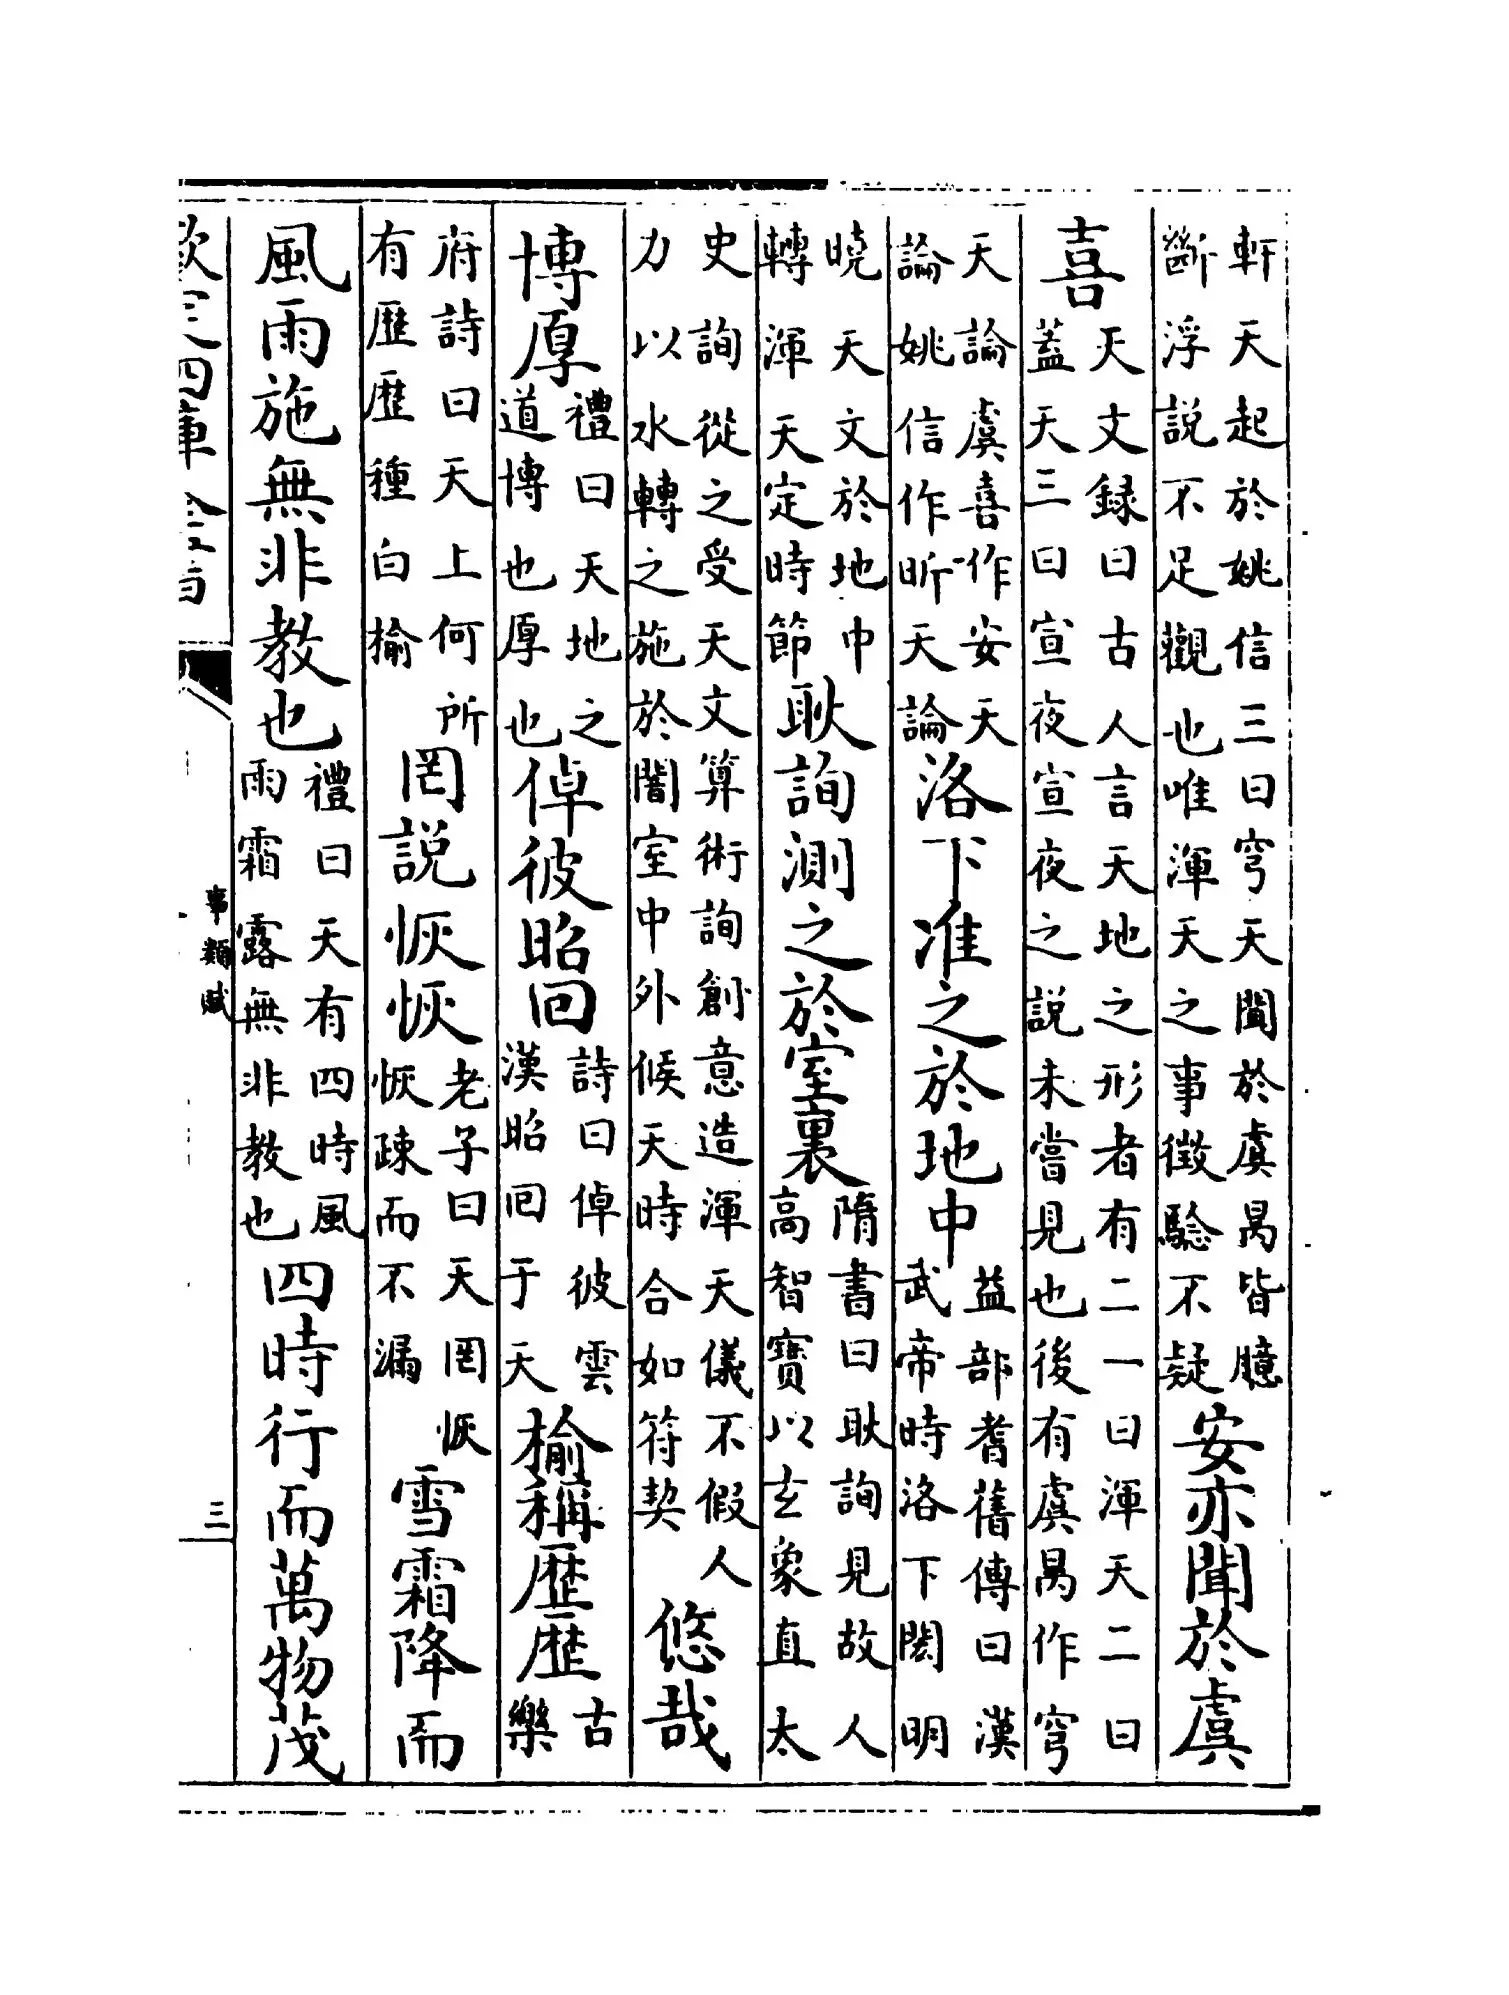 軒天起於姚信三曰穹天聞於虞昺皆臆斷浮說不足觀也唯渾天之事徵驗不疑安亦聞於虞
喜天文録曰古人言天地之形者有二一曰渾天二曰蓋天三曰宣夜宣夜之說未嘗見也後有虞昺作穹
天論虞喜作安天論姚信作昕天論洛下准之於地中益部耆舊傳曰漢武帝時洛下閎明
曉天文於地中轉渾天定時節耿詢測之於室裏隋書曰耿詢見故人高智寶以玄象直太
史詢從之受天文算術詢創意造渾天儀不假人力以水轉之施於闇室中外候天時合如符契悠哉
博厚禮曰天地之道博也厚也倬彼昭回詩曰倬彼雲漢昭回于天榆稱歷歷古樂
府詩曰天上何所有歷歷種白榆罔說恢恢老子曰天罔恢恢疎而不漏雪霜降而
風雨施無非教也禮曰天有四時風雨霜露無非教也四時行而萬物茂
欽定四庫全書
事類賦
三